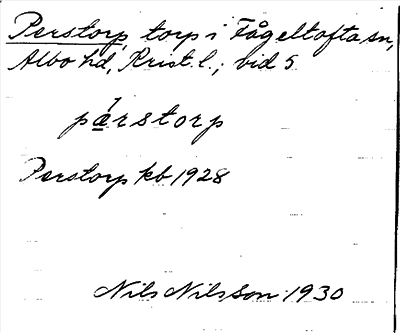 Perstorp, torp i Fågeltofta sn,
Albo hd, Krist. l.; vid 5.
pǽ̨rstorp
Perstorp kb 1928
Nils Nilsson 1930